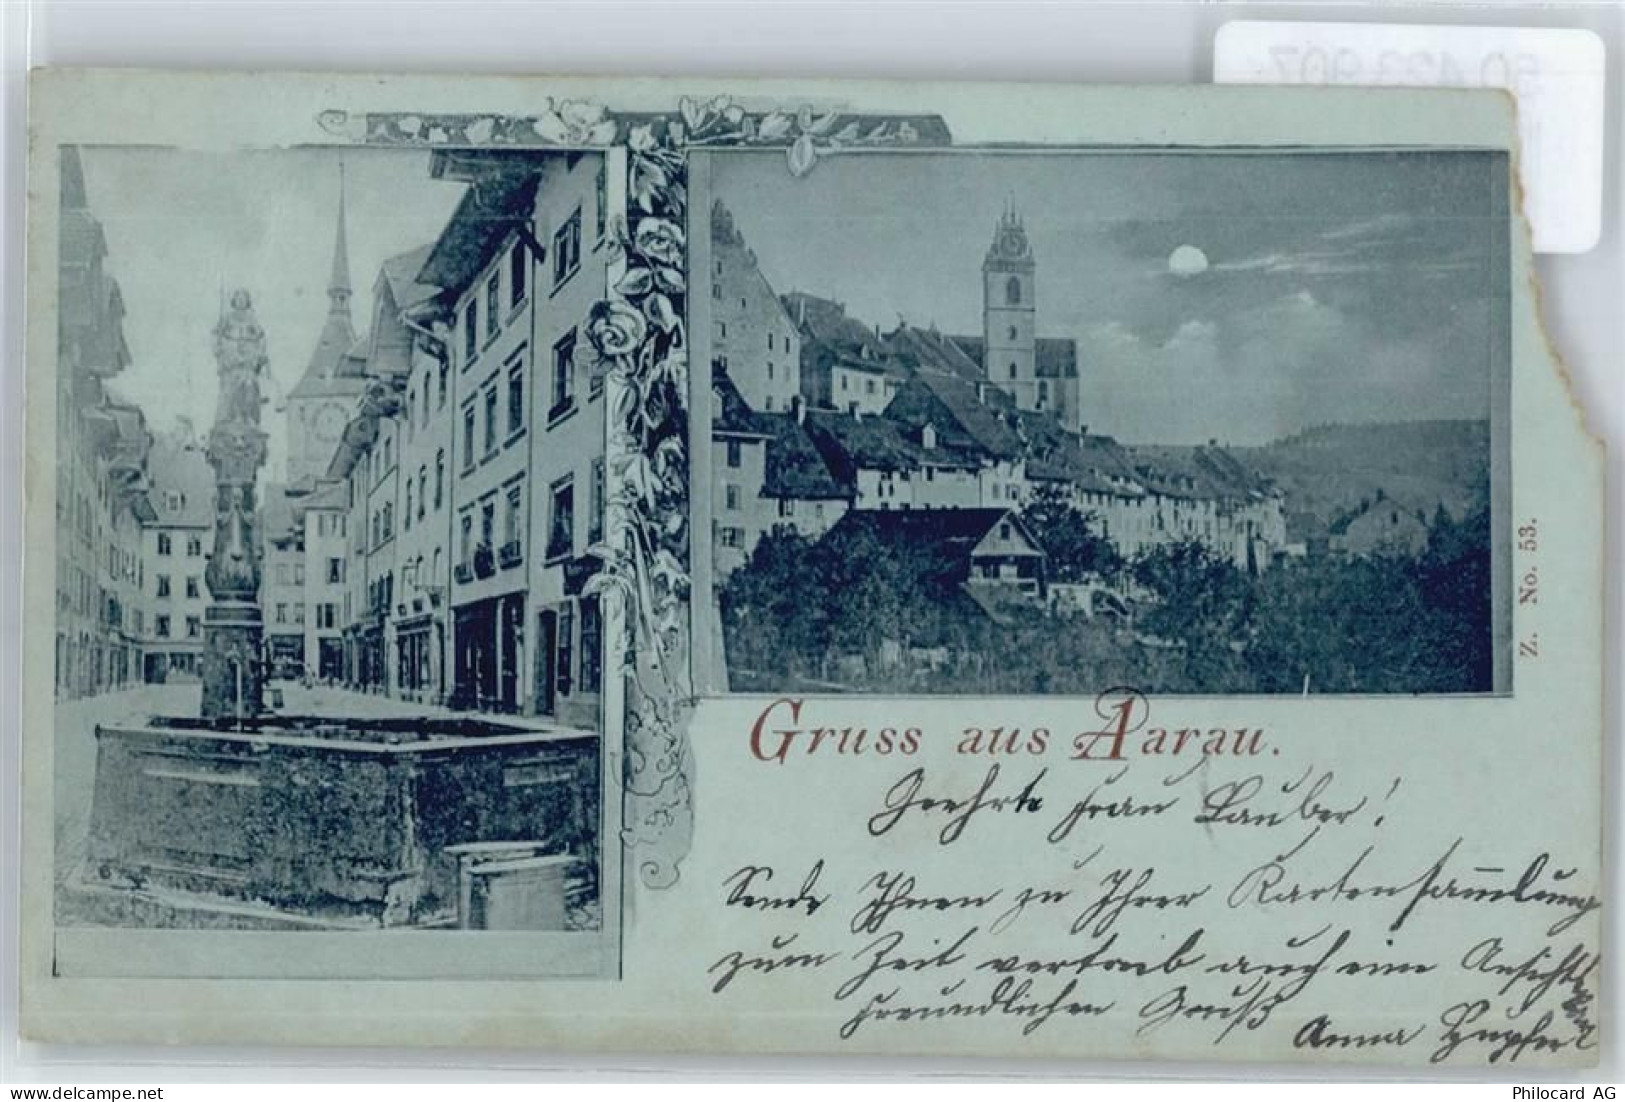 50 423 907
Z. No. 53.
Gruss aus Aarau.
Geehrte Frau Lauber!
Sende Ihnen zu Ihrer Kartensammlung
zum Zeit vertreib auch eine Ansicht
freundlichen Gruß
Anna Hupfer
delcampe.net
Philocard AG